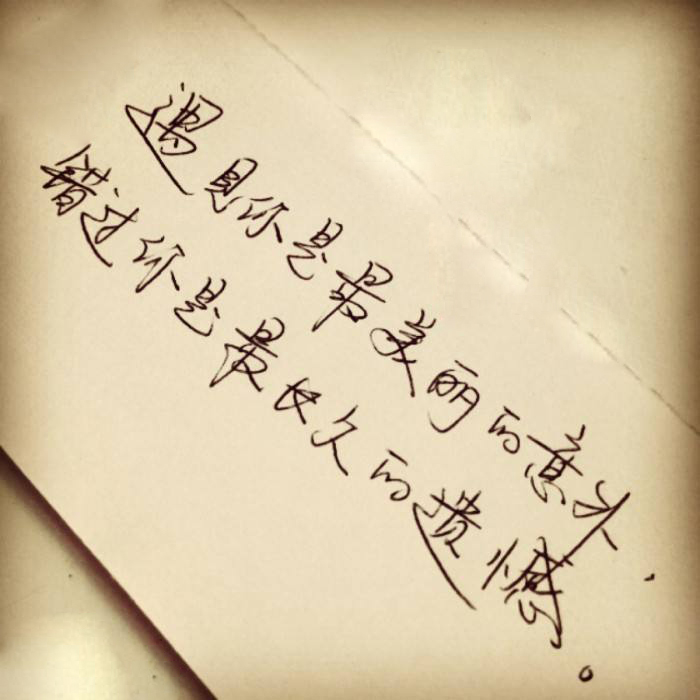 遇见你是最美丽的意外,
错过你是最长久的遗憾。